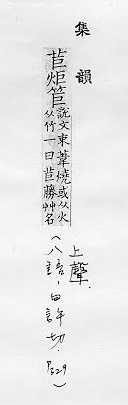 集韻
苣炬筥説文束葦燒或从火
从竹一曰苣藤艸名
上聲
(八語,臼許切.P329)